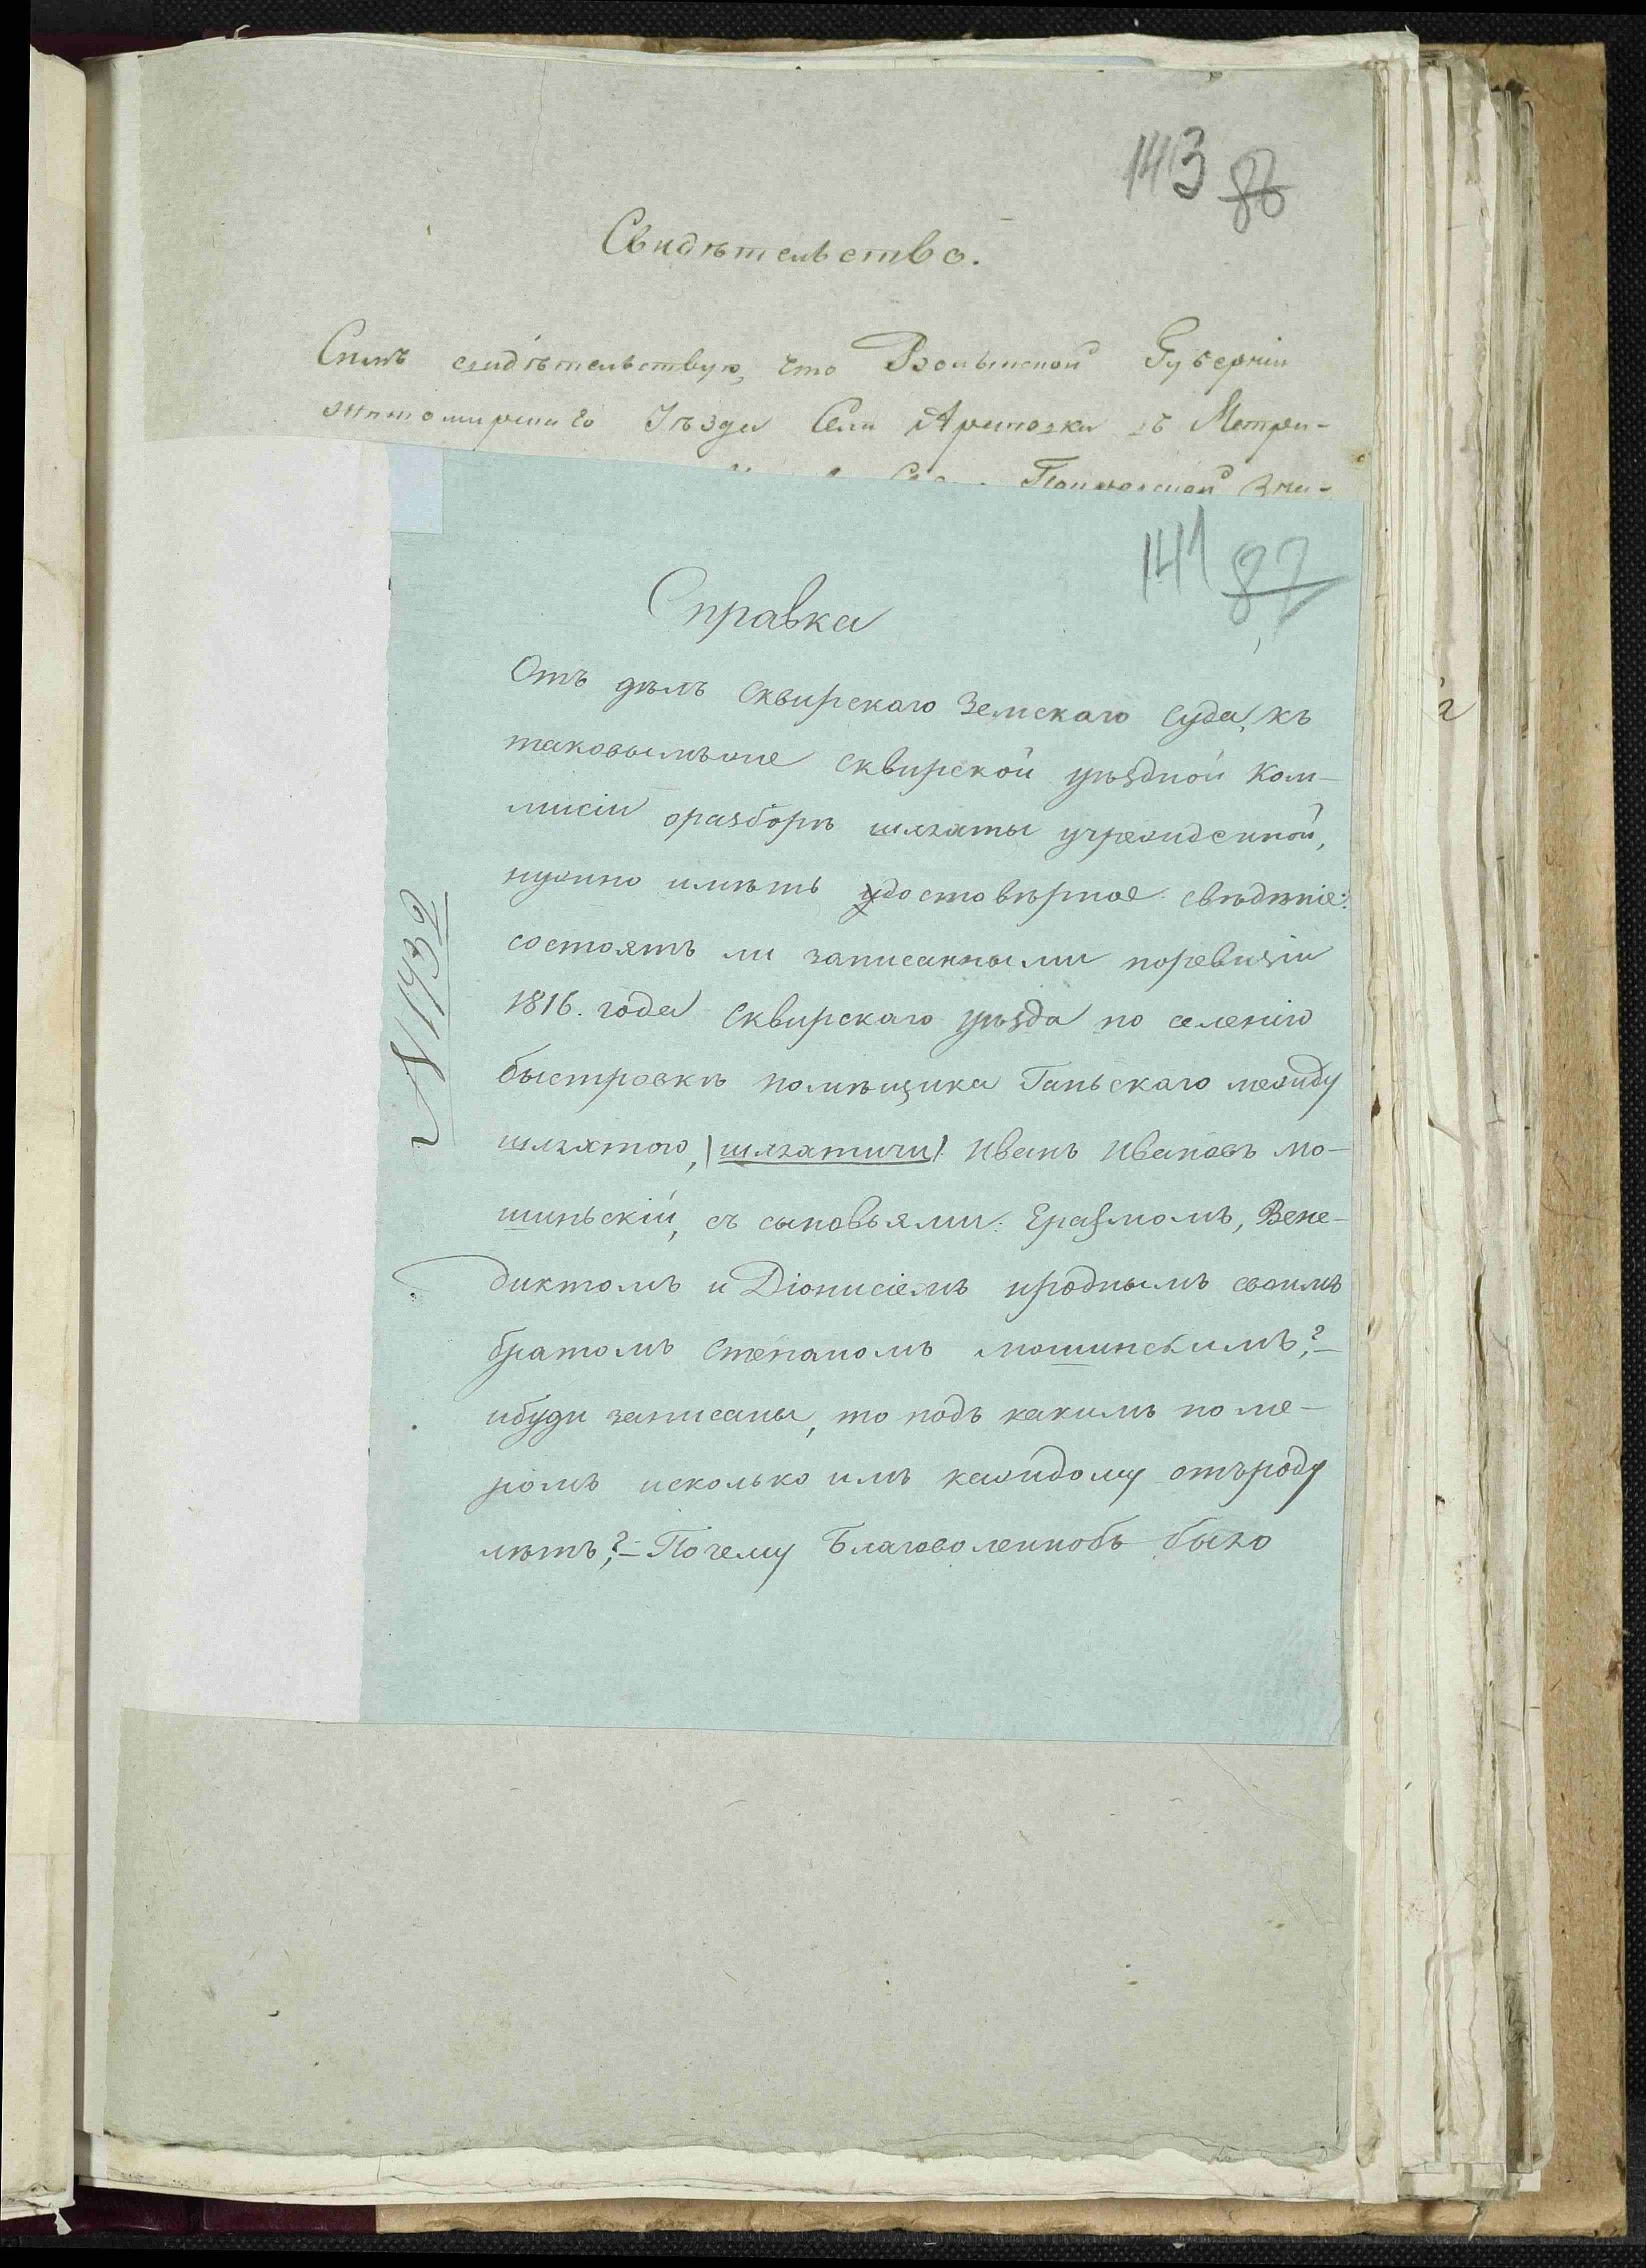 143 86
Свидѣтельство.
Симъ свидѣтельствую, что Волынской Губерніи
Житомирскаго Уѣзда Села въ Метри-
141 87
Справка
Отъ дѣлъ Сквирскаго Земскаго Суда, къ
таковымъже сквирской уѣздной Ком-
мисіи оразборѣ шляхты учрежденной,
нужно имѣть удостовѣрное свѣдѣніе:
состоятъ ли записанными поревизіи
1816. года Сквирскаго уѣзда по селенію
быстровкѣ помѣщика Ганьскаго между
шляхтою, (шляхтичи) Иванъ Ивановъ мо-
шиньскій, съ сыновьями: Еразмомъ, Вене-
диктомъ и Діонисіемъ ироднымъ своимъ
братомъ Степаномъ мошинскимъ,?-
ибуди записаны, то подъ какимъ номе-
ромъ исколько имъ каждому отъроду
лѣтъ,?- Почему Благоволеннобъ было
N 1732